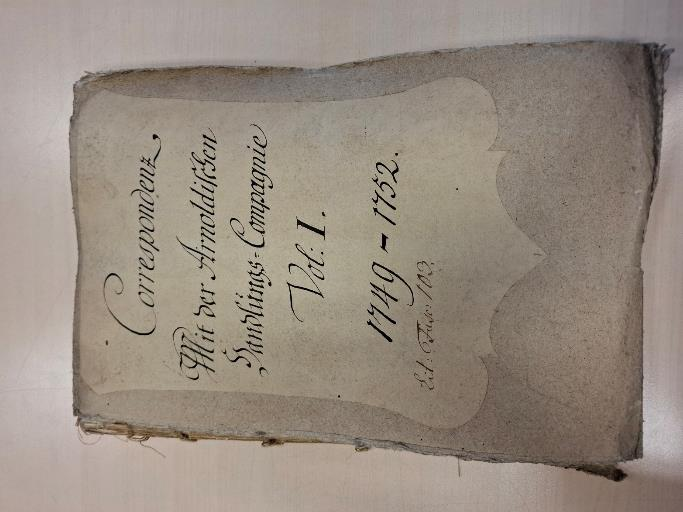 Correspondenz
Mit der Arnoldischen
Handlungs-Compagnie
Vol: I.
1749 – 1752.
Lit: Fasc: 103.